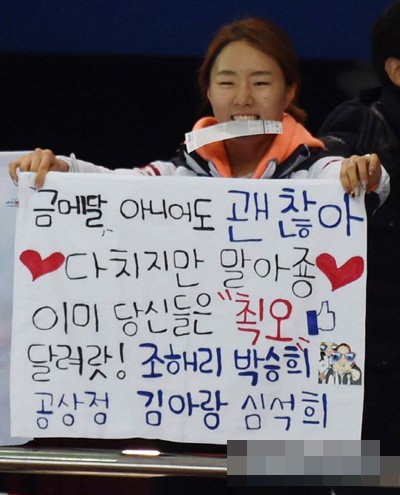 금메달, 아니어도 괜찮아
다치지만 말아죵
이미 당신들은 "최오"
달려랏! 조해리 박승희
공상정 김아랑 심석희